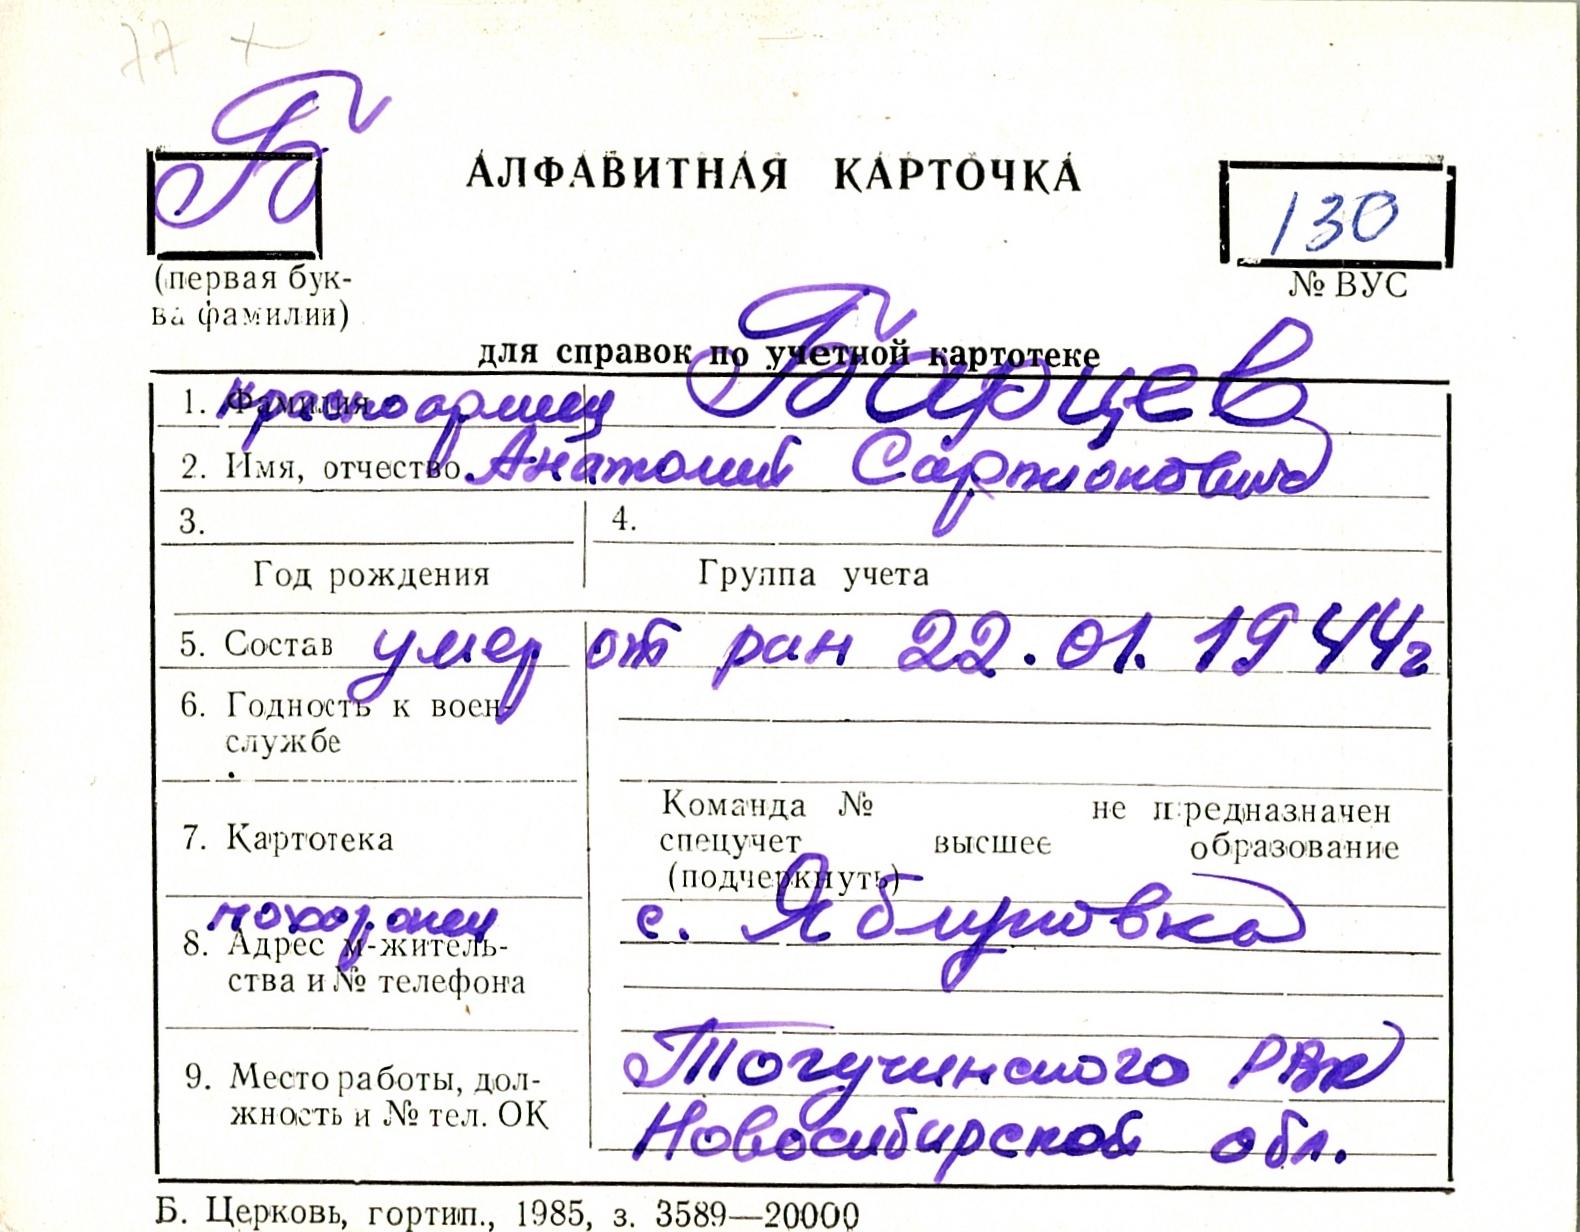 77 х
Б
АЛФАВИТНАЯ КАРТОЧКА
130
(первая бук-
ва фамилии)
№ ВУС
для справок по учетной картотеке
1. Фамилия красноармеец Барцев
2. Имя, отчество Анатолий
3. 4.
Год рождения Группа учета
5. Состав умер от ран 22.01.1944г
6. Годность к воен-
службе
Команда № не предназначен
7. Картотека спецучет высшее образование
(подчеркнуть)
похоронен с. Яблуновка
8. Адрес м-житель-
ства и № телефона
Тогучинского РВК
9. Место работы, дол-
жность и № тел. ОК
Новосибирской обл.
Б. Церковь, гортип., 1985, з. 3589—20000